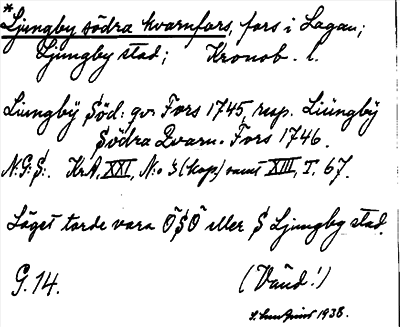 *Ljungby södra kvarnfors, fors i Lagan;
Ljungby stad; Kronob. l.
Liungbÿ Söd: qv: Fors 1745, resp. Liüngbÿ
Södra Qvarn. Fors 1746.
N:G:S:. KrA, XXI, N:o 3 (kop) samt XIII, I. 67.
Läget torde vara ÖSÖ eller S Ljungby stad.
G. 14. (Vänd!)
1938.